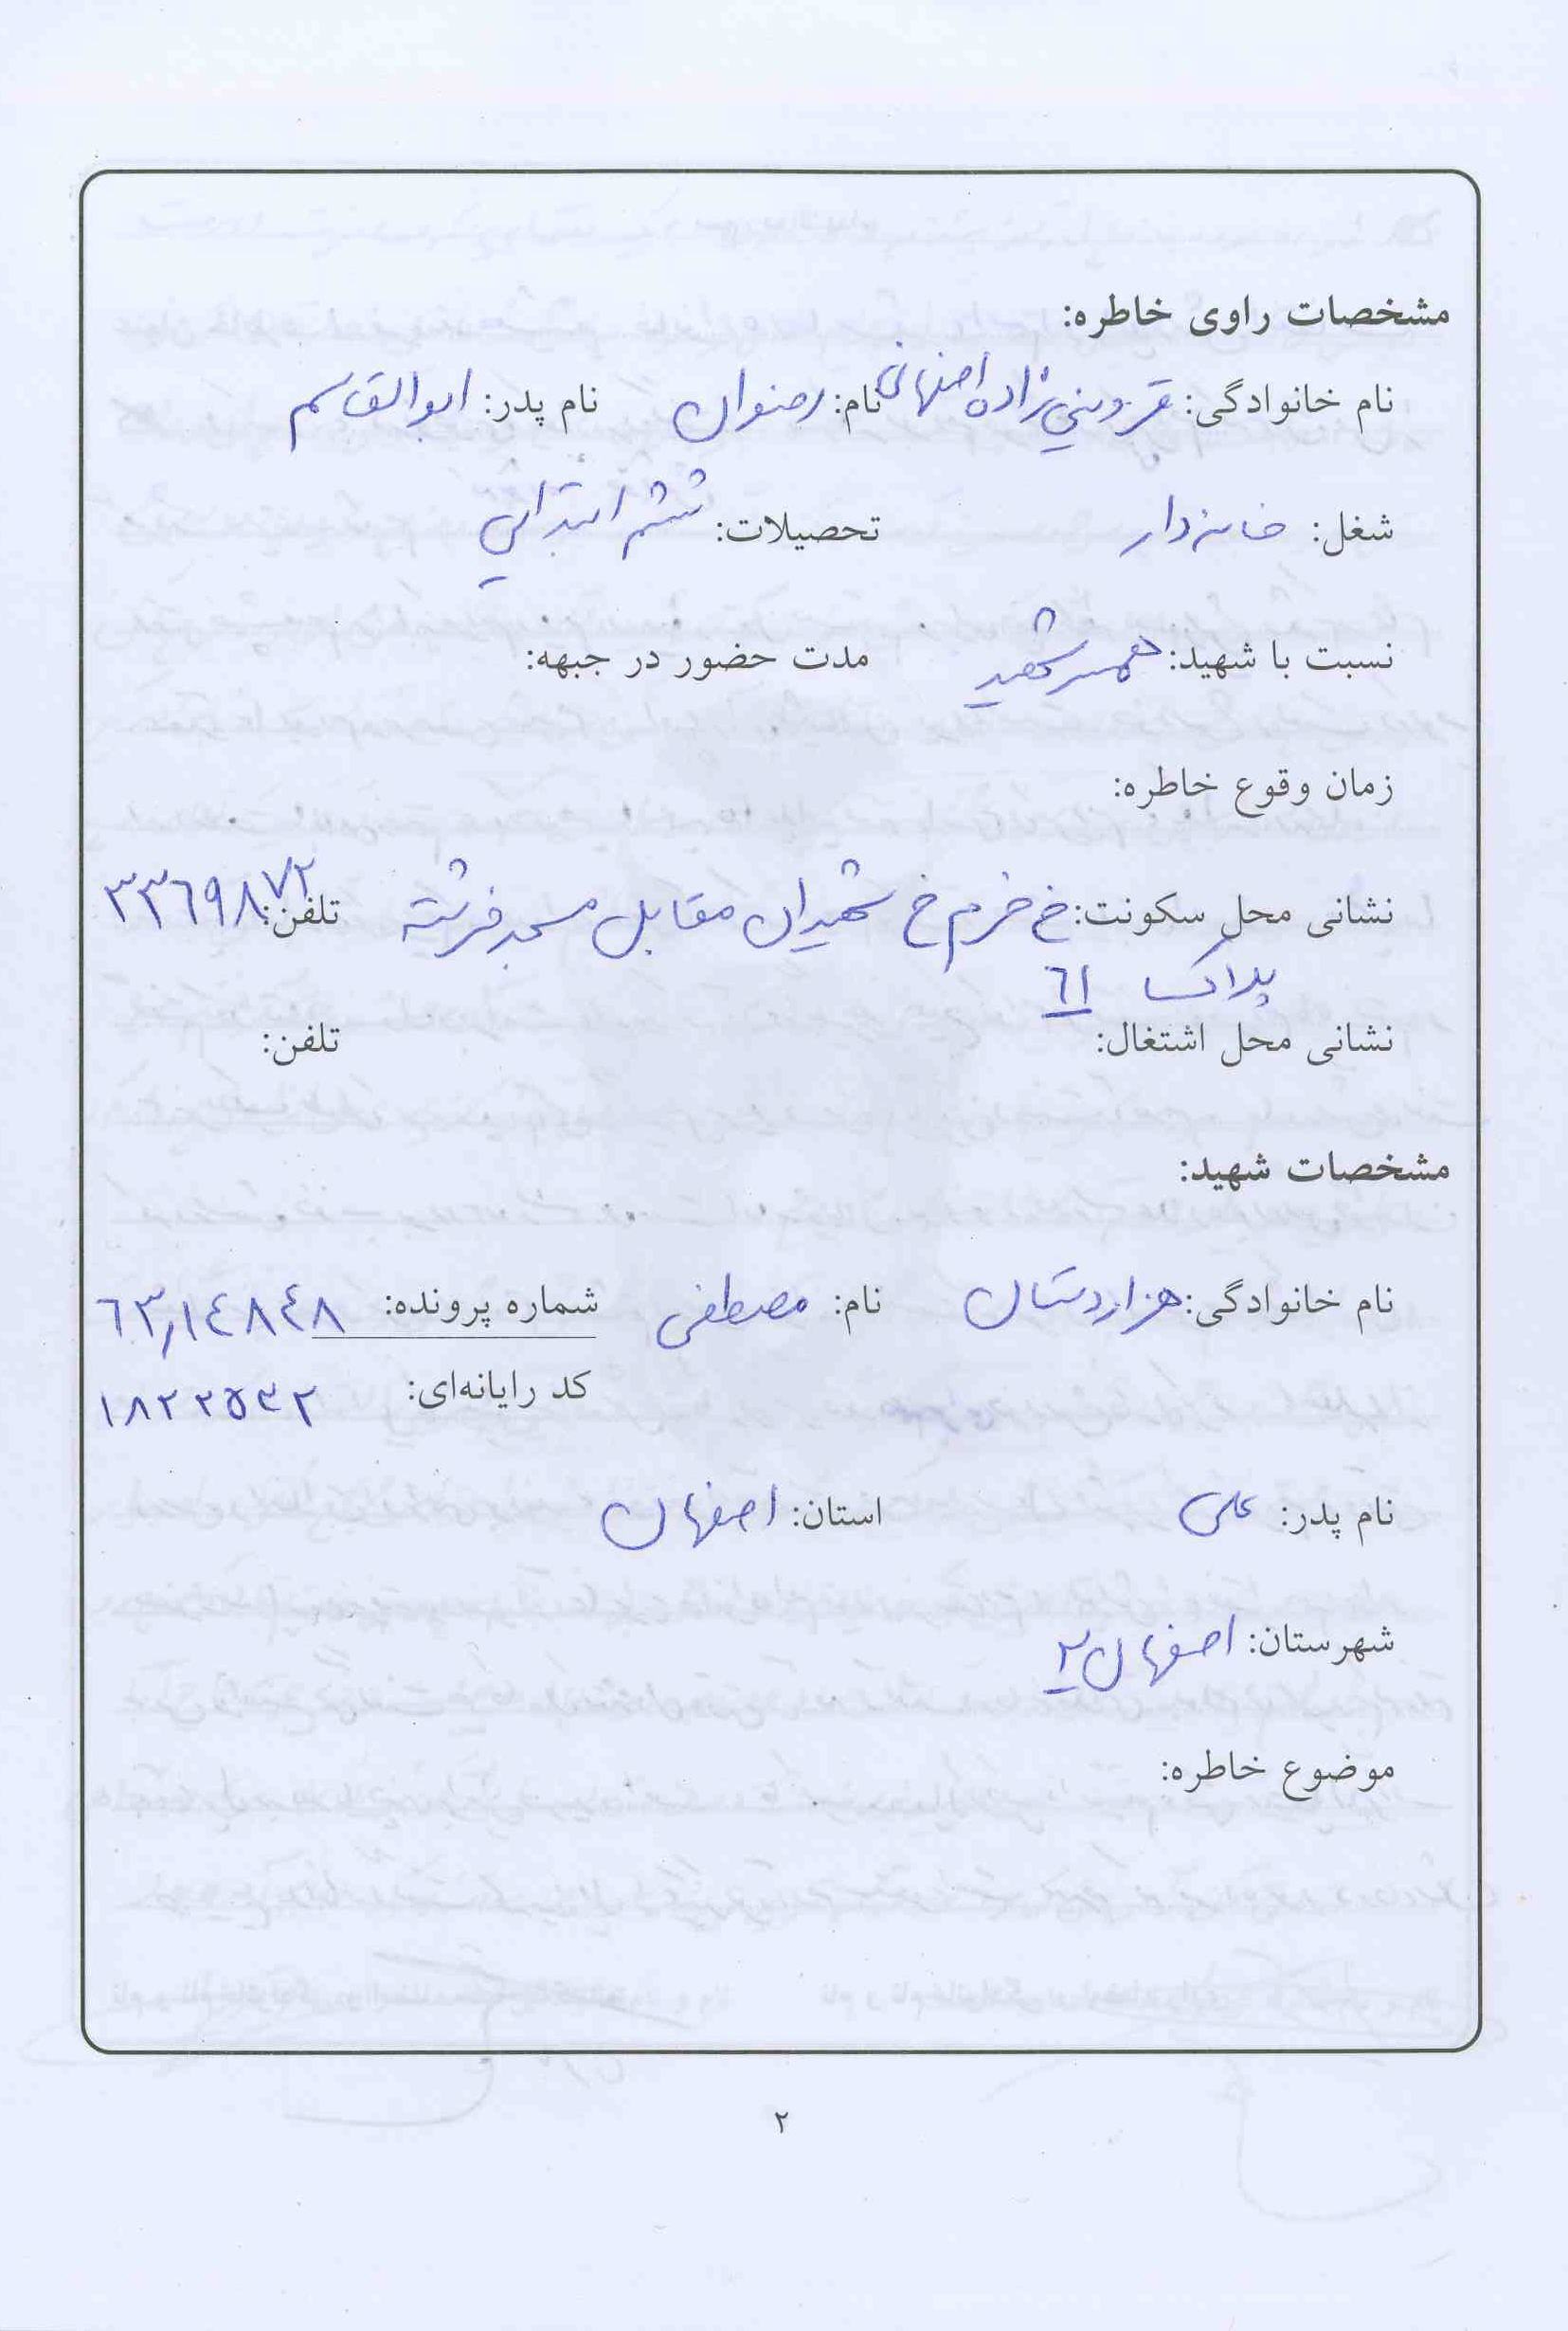 مشخصات راوی خاطره:
نام خانوادگی: قزوینی زاده اصفهانی نام: رضوان نام پدر: ابوالقاسم
شغل: خانه دار تحصیلات: ششم ابتدایی
نسبت با شهید: همسر شهید مدت حضور در جبهه:
زمان وقوع خاطره:
نشانی محل سکونت: خ خرم خ شهیدان مقابل مسجد فرشته تلفن: ۳۳۶۹۸۷۲
پلاک ۶۱
نشانی محل اشتغال: تلفن:
مشخصات شهید:
نام خانوادگی: هزاردستان نام: مصطفی شماره پرونده: ۶۳٫۱۴۸۴۸
کد رایانه‌ای: ۱۸۲۲۵۳۲
نام پدر: علی استان: اصفهان
شهرستان: اصفهان ۲
موضوع خاطره:
۲